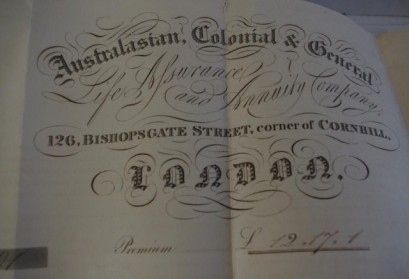 Australasian, Colonial & General
Life Assurance
and Annuity Company.
126, BISHOPSGATE STREET, corner of CORNHILL,
LONDON.
Premium £ 12.17.1